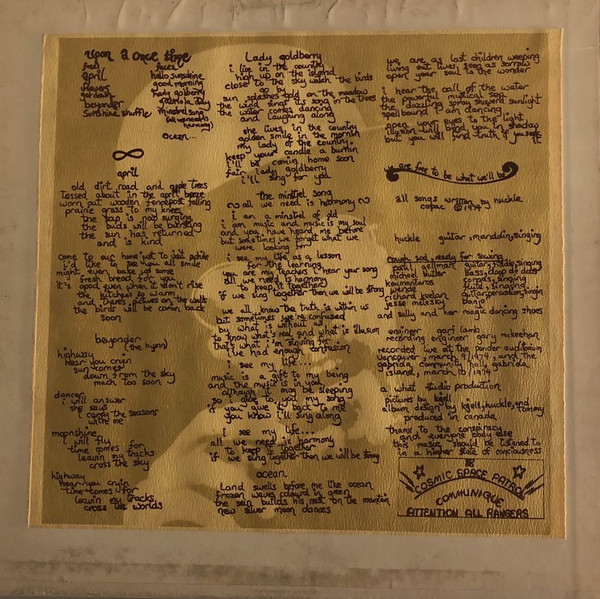 upon a once time
feel
april
flowers
gordean
beyonder
sunshine shuffle
faces
hello sunshine
good morning
lady golberry
gabriola July
minstrel song
(all we need is harmony)
ocean...
∞
april
old dirt road and apple trees
tossed about in the april breeze
worn out wooden fencepost falling
prairie grass to my knees
the tap is not running
the buds will be bursting
the sun has returned
and is kind
come to our home just to visit awhile
i'd like to see you all smile
might even bake you some
fresh bread for you
it's good even when it won't rise
the kitchen is warm
and there's pictures on the walls
the birds will be coming back
soon
beyonder
(the hymn)
highway
hear you cryin
sun comes
down from the sky
much too soon
dancer
i will answer
she says
i carry the seasons
with me
moonshine
i will fly
time comes for
leavin my tracks
cross the sky
highway
hear you cryin
time comes for
leavin my tracks
cross the worlds
Lady goldberry
i live in the country
high up on the island
close to the sky watch the birds
sun splashes gold on the meadow
the wind sings its song in the trees
the water comes dancing
and laughing along
she lives in the country
golden smile in the mornin
my lady of the country
keep your candle a burnin
i'll be comin home soon
fair lady goldberry
i'll sing for you
the minstrel song
~ all we need is harmony ~
i am a minstrel of old
i am music and music is my soul
and you have heard me before
but sometimes we forget what we
were looking for
i see my life as a lesson
for the learning
you are my teachers hear your song
all we need is harmony
to keep it together
if we sing together then we will be strong
we all know the truth is within us
but sometimes we're confused
by what is without us
to know what's real and what is illusion
that's what i'm singing for
i've had enough confusion
i see my life...
music is a gift to my being
and the music is in you
although it may be sleeping
so allow to get my song
if you give it back to me
you know i'll sing along
i see my life...
all we need is harmony
to keep it together
if we sing together then we will be strong
ocean
Land swells before me like ocean
frozen waves coloured in green
the sun builds his nest on the mountain
new silver moon dances
we are as lost children weeping
living out lives sown as sorrow
open your soul to the wonder
i hear the call of the water
the powerful musical sea
the dazzling spray shaped sunlight
spellbound i am dancing
open your eyes to the light
illusion will bind you in shadow
but you will find truth if you seek
we are free to be what we'll be
all songs written by huckle
capac © 1974
huckle guitar, mandolin, singing
rough sod, ready for sowing
paul gellman
michael butler bass,
kaumanaros
wende flute, singing
richard kuclan
jesse milksky banjo
and sally and her magic dancing shoes
engineer garf lamb
recording engineer gary mckeehan
recorded live at the pender auditorium
vancouver, march 9, 1974, and the
gabriola community hall, gabriola
island, march 10, 1974
a what studio production
pictures by kjell
album design by kjell, huckle, and tommy
produced in canada
thanx to the conspiracy
and everyone body else
this music should be listened to
in a higher state of consciousness
COSMIC SPACE PATROL
COMMUNIQUE
ATTENTION ALL RANGERS